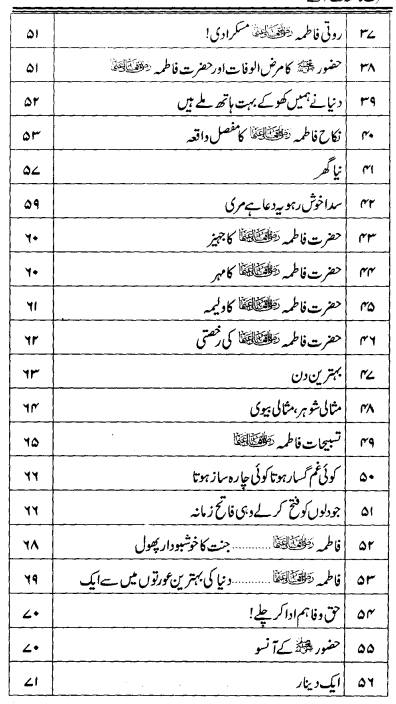 ۳۷ روتی فاطمہ رضی اللہ عنہا مسکرا دی! ۵۱
۳۸ حضور ﷺ کا مرض الوفات اور حضرت فاطمہ رضی اللہ عنہا ۵۱
۳۹ دنیا نے ہمیں کھو کے بہت ہاتھ ملے ہیں ۵۲
۴۰ نکاح فاطمہ رضی اللہ عنہا کا مفصل واقعہ ۵۳
۴۱ نیا گھر ۵۷
۴۲ سدا خوش رہو یہ دعا ہے مری ۵۹
۴۳ حضرت فاطمہ رضی اللہ عنہا کا جہیز ۶۰
۴۴ حضرت فاطمہ رضی اللہ عنہا کا مہر ۶۰
۴۵ حضرت فاطمہ رضی اللہ عنہا کا ولیمہ ۶۱
۴۶ حضرت فاطمہ رضی اللہ عنہا کی رخصتی ۶۲
۴۷ بہترین دن ۶۳
۴۸ مثالی شوہر، مثالی بیوی ۶۴
۴۹ تسبیحات فاطمہ رضی اللہ عنہا ۶۵
۵۰ کوئی غم گسار ہوتا کوئی چارہ ساز ہوتا ۶۶
۵۱ جو دلوں کو فتح کر لے وہی فاتح زمانہ ۶۶
۵۲ فاطمہ رضی اللہ عنہا ........... جنت کا خوشبودار پھول ۶۸
۵۳ فاطمہ رضی اللہ عنہا ........... دنیا کی بہترین عورتوں میں سے ایک ۶۹
۵۴ حق وفا ہم ادا کر چلے! ۷۰
۵۵ حضور ﷺ کے آنسو ۷۰
۵۶ ایک دینار ۷۱